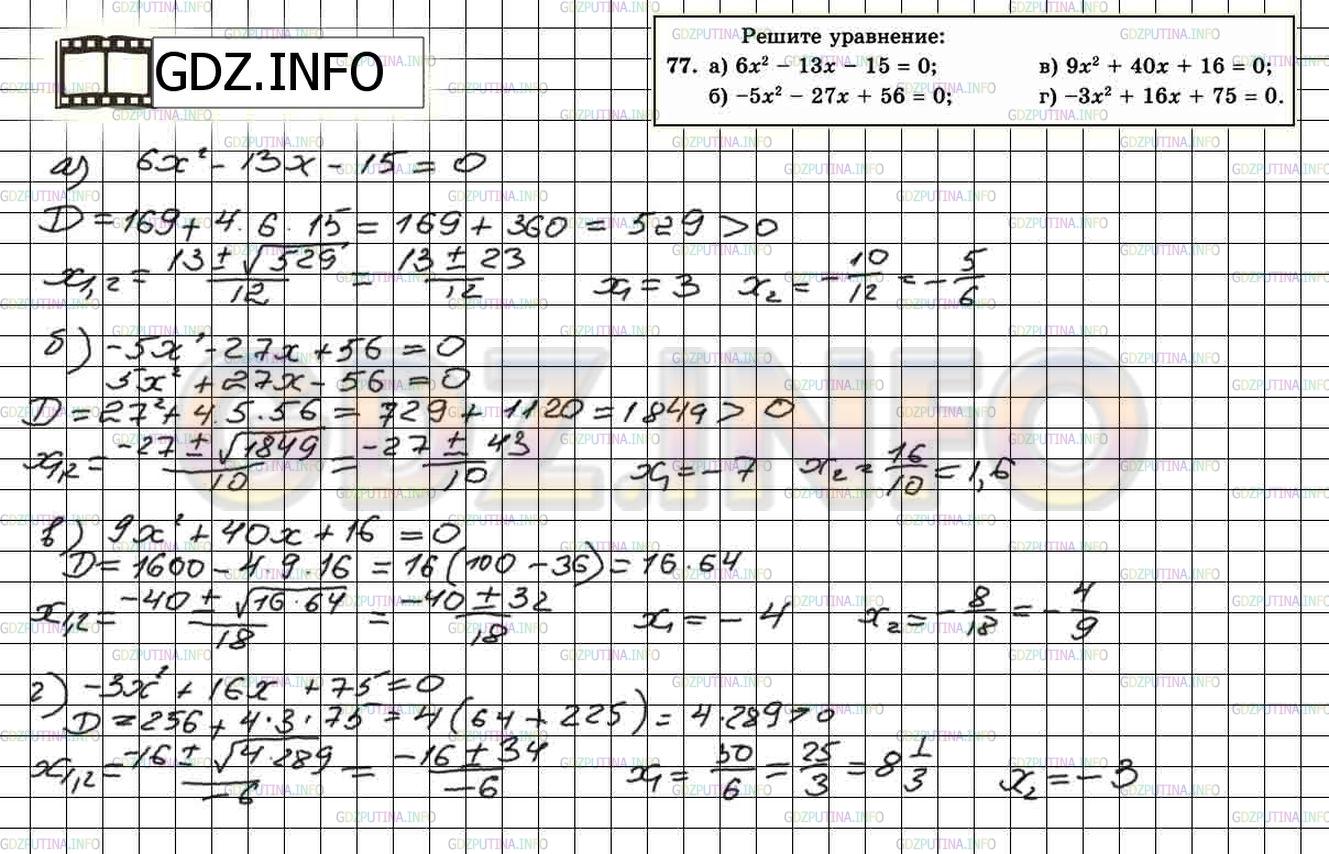 GDZ.INFO
Решите уравнение:
77. а) 6x² − 13x − 15 = 0; в) 9x² + 40x + 16 = 0;
б) −5x² − 27x + 56 = 0; г) −3x² + 16x + 75 = 0.
а) 6x² - 13x - 15 = 0
D = 169 + 4 · 6 · 15 = 169 + 360 = 529 > 0
x₁,₂ = (13 ± √529)/12 = (13 ± 23)/12 x₁ = 3 x₂ = -10/12 = -5/6
б) -5x² - 27x + 56 = 0
5x² + 27x - 56 = 0
D = 27² + 4 . 5 . 56 = 729 + 1120 = 1849 > 0
x₁,₂ = (-27 ± √1849)/10 = (-27 ± 43)/10 x₁ = -7 x₂ = 16/10 = 1,6
в) 9x² + 40x + 16 = 0
D = 1600 - 4 · 9 · 16 = 16 (100 - 36) = 16 · 64
x₁,₂ = (-40 ± √16·64)/18 = (-40 ± 32)/18 x₁ = -4 x₂ = -8/18 = -4/9
г) -3x² + 16x + 75 = 0
D = 256 + 4 · 3 · 75 = 4 (64 + 225) = 4 · 289 > 0
x₁,₂ = (-16 ± √4·289)/-6 = (-16 ± 34)/-6 x₁ = 50/6 = 25/3 = 8 1/3 x₂ = -3